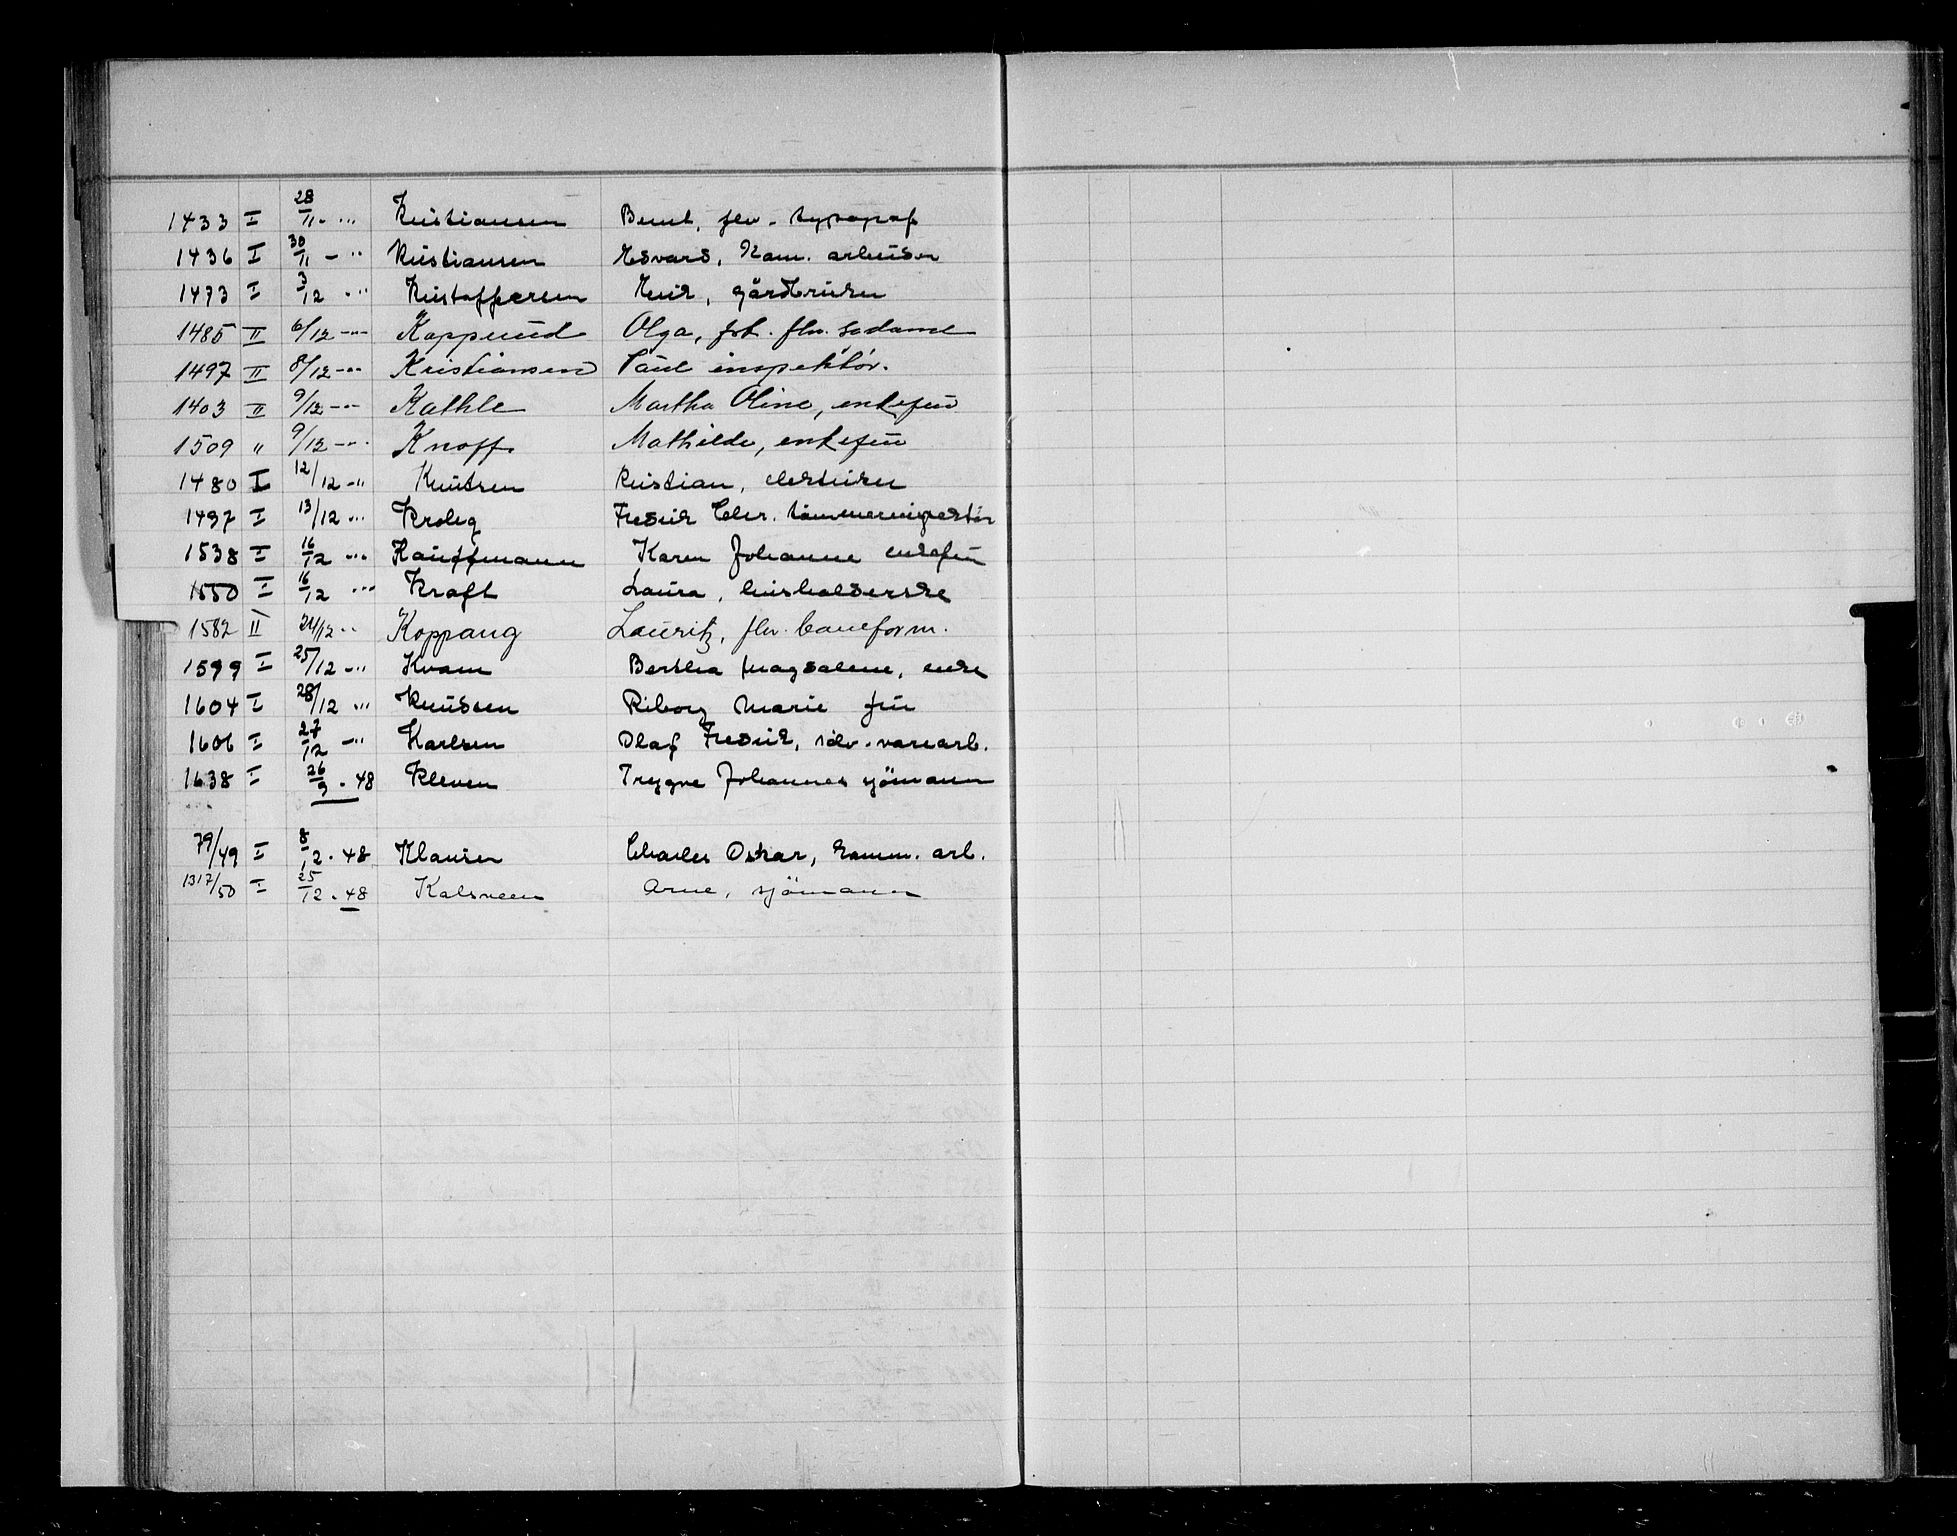 1433 I 28/11 - " Kristiansen Bernt, fhv. typograf
1436 I 30/11 - " Kristiansen Edvard, kom. arbeider
1473 I 3/12 - " Kristoffersen Henrik, gårdbruker
1485 II 6/12 - " Kopperud Olga, frk. fhv.
1497 II 8/12 - " Kristiansen Paul inspektør.
1403 II 9/12 - " Kathle Martha Oline, enkefru
1509 " 9/12 - " Knoff. Mathilde, enkefru
1480 I 12/12 - " Knutsen Kristian, elektriker
1497 I 13/12 - " Krolig Fredrik Chr. tømmerinspektør
1538 I 16/12 - " Kauffmann Karen Johanne enkefru
1550 I 16/12 - " Kraft Laura, husholderske
1582 II 24/12 - " Koppang Lauritz, fhv. baneform.
1599 I 25/12 - " Kvam Bertha Magdalene, enke
1604 I 28/12 - " Knudsen Riborg Marie fru
1606 I 27/12 - " Karlsen Olaf Fredrik, sølv-varearb.
1638 I 26/9 - 48 Kleven Trygve Johannes sjömann
79/49 I 8/12 - 48 Klausen Charles Oskar, komm. arb.
1317/50 I 25/12 - 48 Kalsveen Arne, sjömann